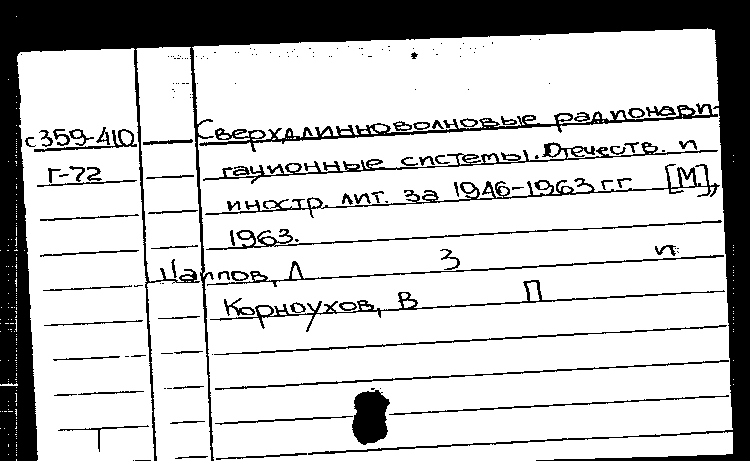 с359-410 Сверхдлинноволновые радионави-
Г-72 гационные системы. Отечеств. и
иностр. лит. за 1946-1963 г.г. [М.],
1963.
Л З и
Корноухов, В П